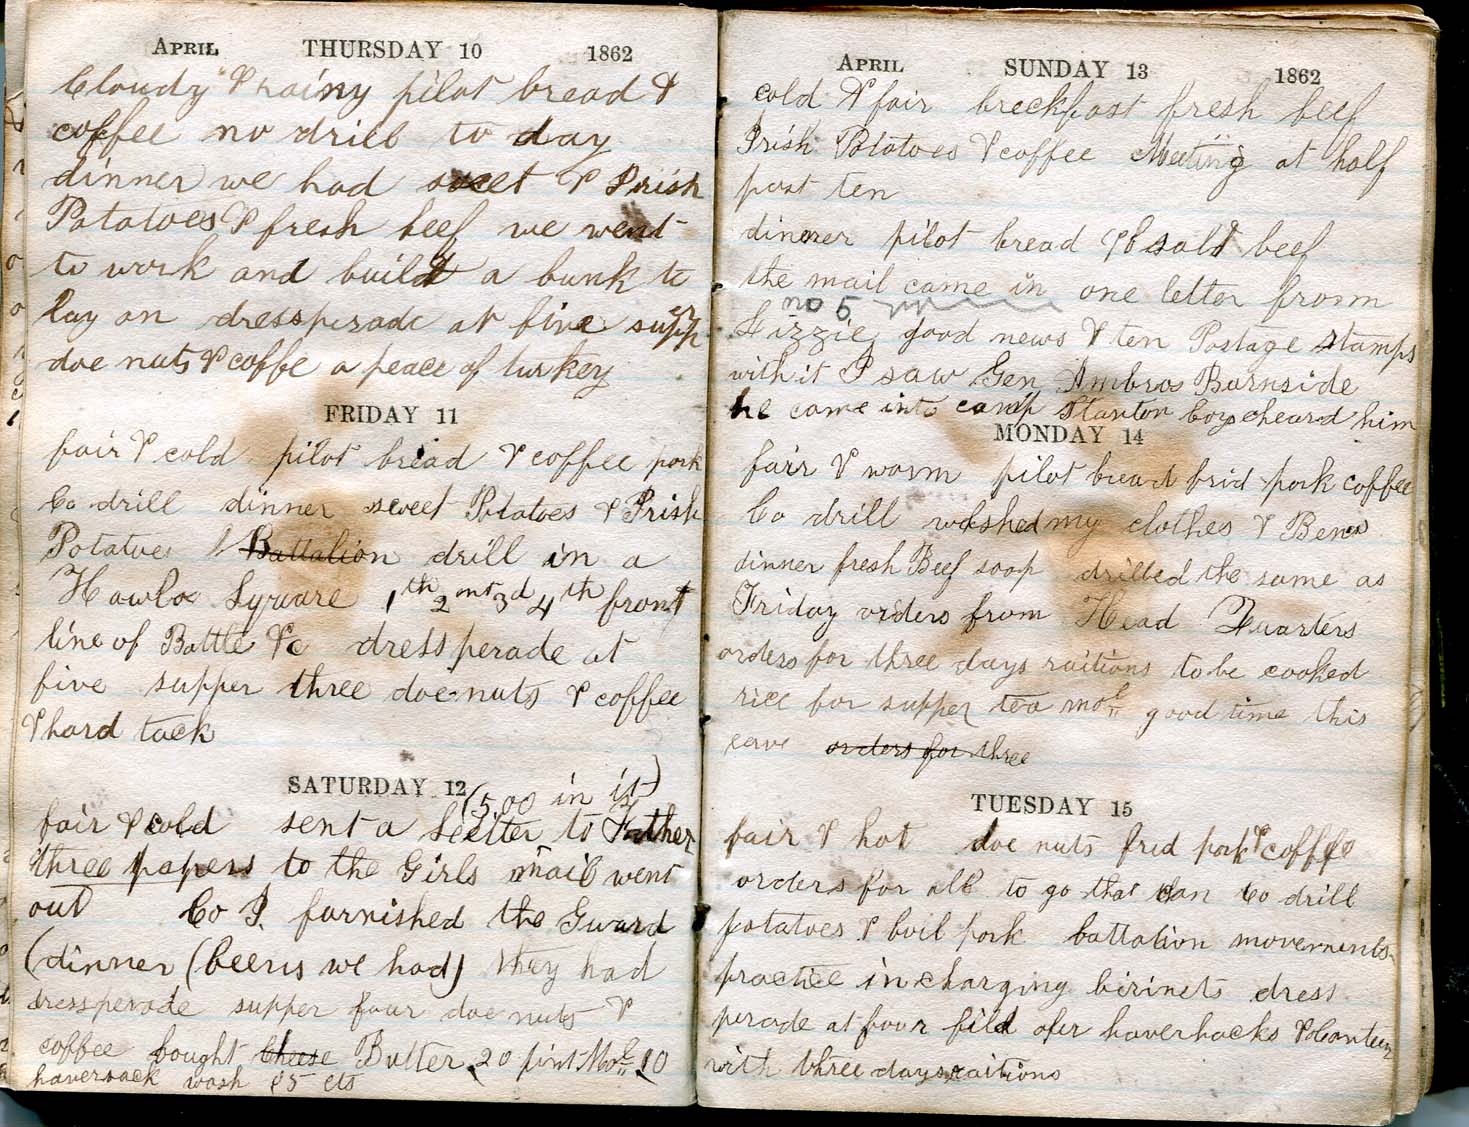 APRIL THURSDAY 10 1862
Cloudy & rainy pilot bread &
coffee no drill to day
dinner we had sweet & Irish
Potatoes & fresh beef we went
to work and build a bunk to
lay on dressperade at five supper
doe nuts & coffe a peace of turkey
FRIDAY 11
fair & cold pilot bread & coffee pork
Co drill dinner sweet Potatoes & Irish
Potatoe Battalion drill in a
Hawlow Square 1th 2nt 3d 4th front
line of Battle &c dressperade at
five supper three doe-nuts & coffee
& hard tack
SATURDAY 12
(5,00 in it)
fair & cold sent a Leetter to Father
three papers to the Girls mail went
out Co I. furnished the Guard
(dinner (beens we had) they had
dressperade supper four doe nuts &
coffee bought Cheese Butter 20 pint Mos 10
haversack wash 85 cts
APRIL SUNDAY 13 1862
cold & fair breckfast fresh beef
Irish Potatoes & coffee Meeting at half
past ten
dinner pilot bread & salt beef
the mail came in one letter from
no 5
Lizzie good news & ten Postage stamps
with it I saw Gen Ambros Burnside
he came into camp Stanton boys cheard him
MONDAY 14
fair & warm pilot bread frid pork coffee
Co drill washed my clothes & Bens
dinner fresh Beef soop drilled the same as
Friday orders from Head Quarters
orders for three days raitions to be cooked
rice for supper tea mos good time this
eave orders for three
TUESDAY 15
fair & hot doe nuts frid pork & coffee
orders for all to go that can Co drill
potatoes & boil pork battalion movements
practice in charging birinets dress
perade at four fild ofer haverhacks & Canteen
with three days raitions